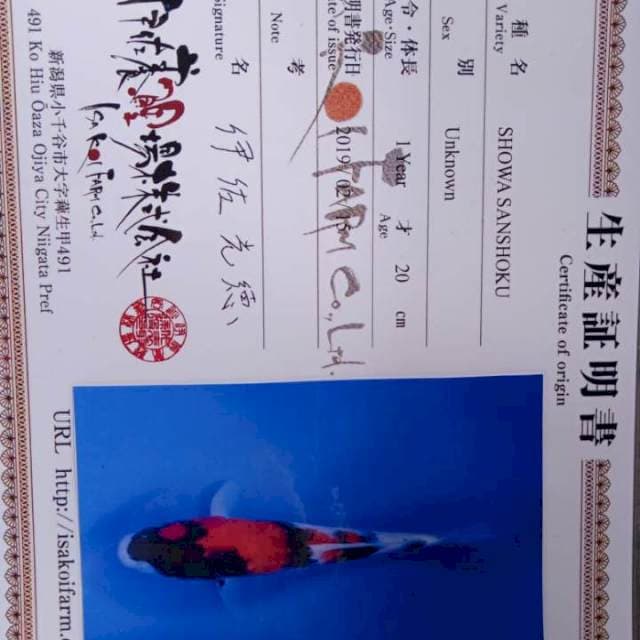 生産証明書
Certificate of origin
種 名
Variety
SHOWA SANSHOKU
別
Sex
Unknown
令・体長
Age・Size
1 Year 才 20 cm
Age
明書発行日
te of issue
2019
FARM Co., Ltd.
考
Note
名
Signature
伊佐光徳
場株式会社
ISA KOI FARM Co. Ltd
新潟県小千谷市大字
甲491
491 Ko Hiu Ōaza Ojiya City Niigata Pref
URL http://isakoifarm.c